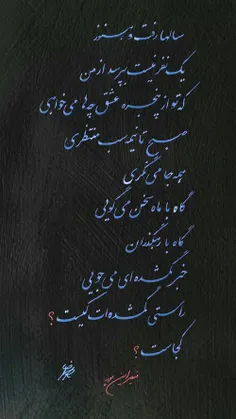 سالها رفت و هنوز
یک نفر نیست بپرسد از من
که تو از پنجره عشق چه ها می خواهی
صبح تا نیمه شب منتظری
همه جا می نگری
گاه با ماه سخن می گویی
گاه با رهگذران
خبر گمشده ای می جویی
راستی گمشده ات کیست ؟
کجاست ؟